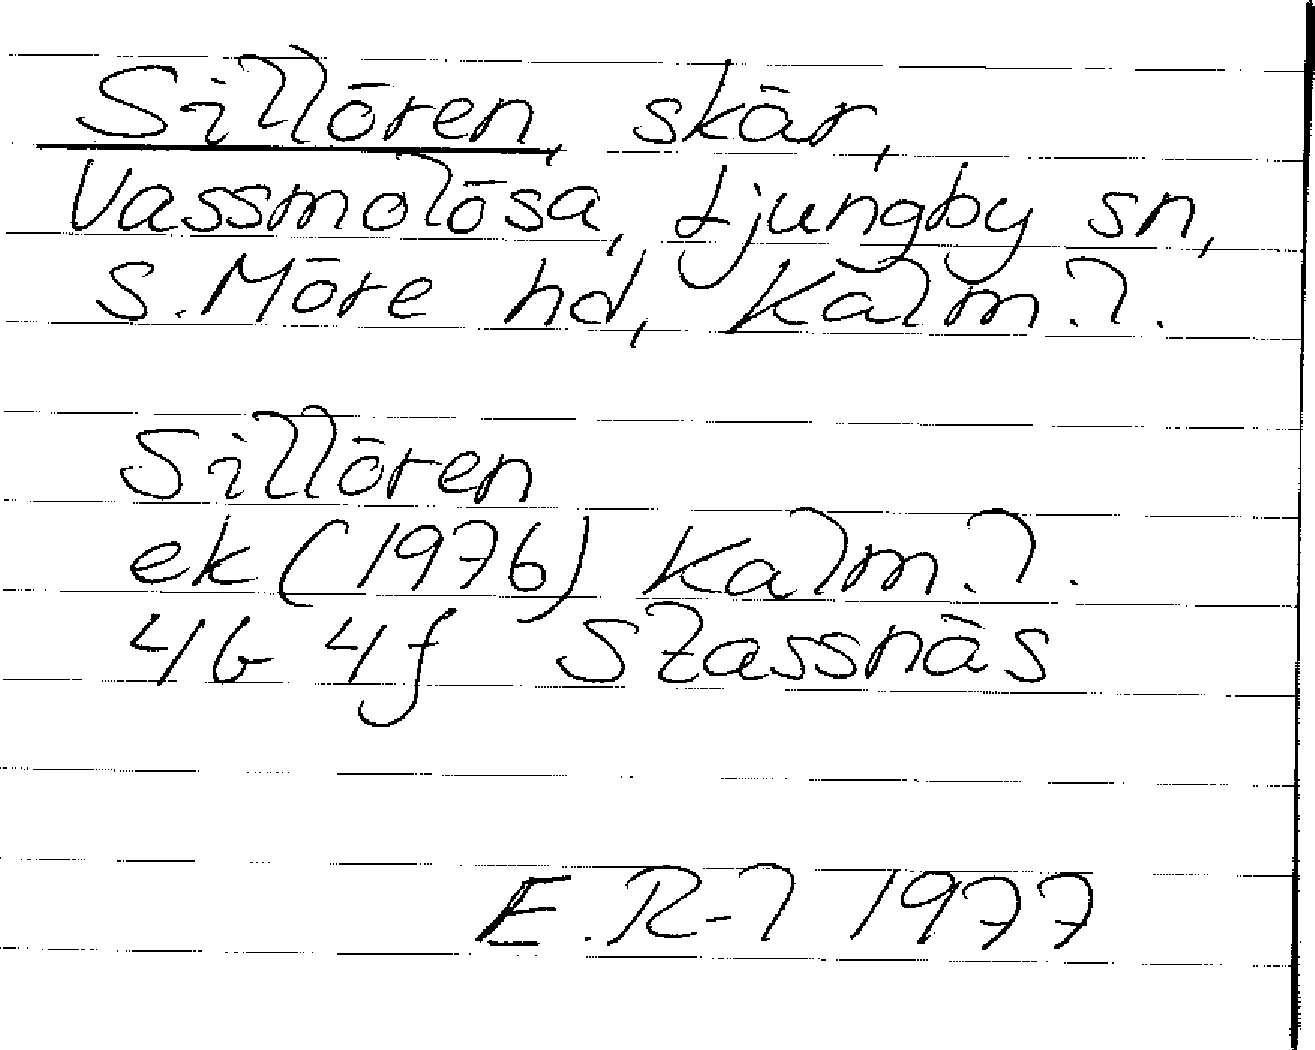 Sillören, skär,
Vassmolösa, Ljungby sn,
S. Möre hd, Kalm. l.
Sillören
ek (1976) Kalm. l.
4G 4f Stassnäs
E. R-l 1977